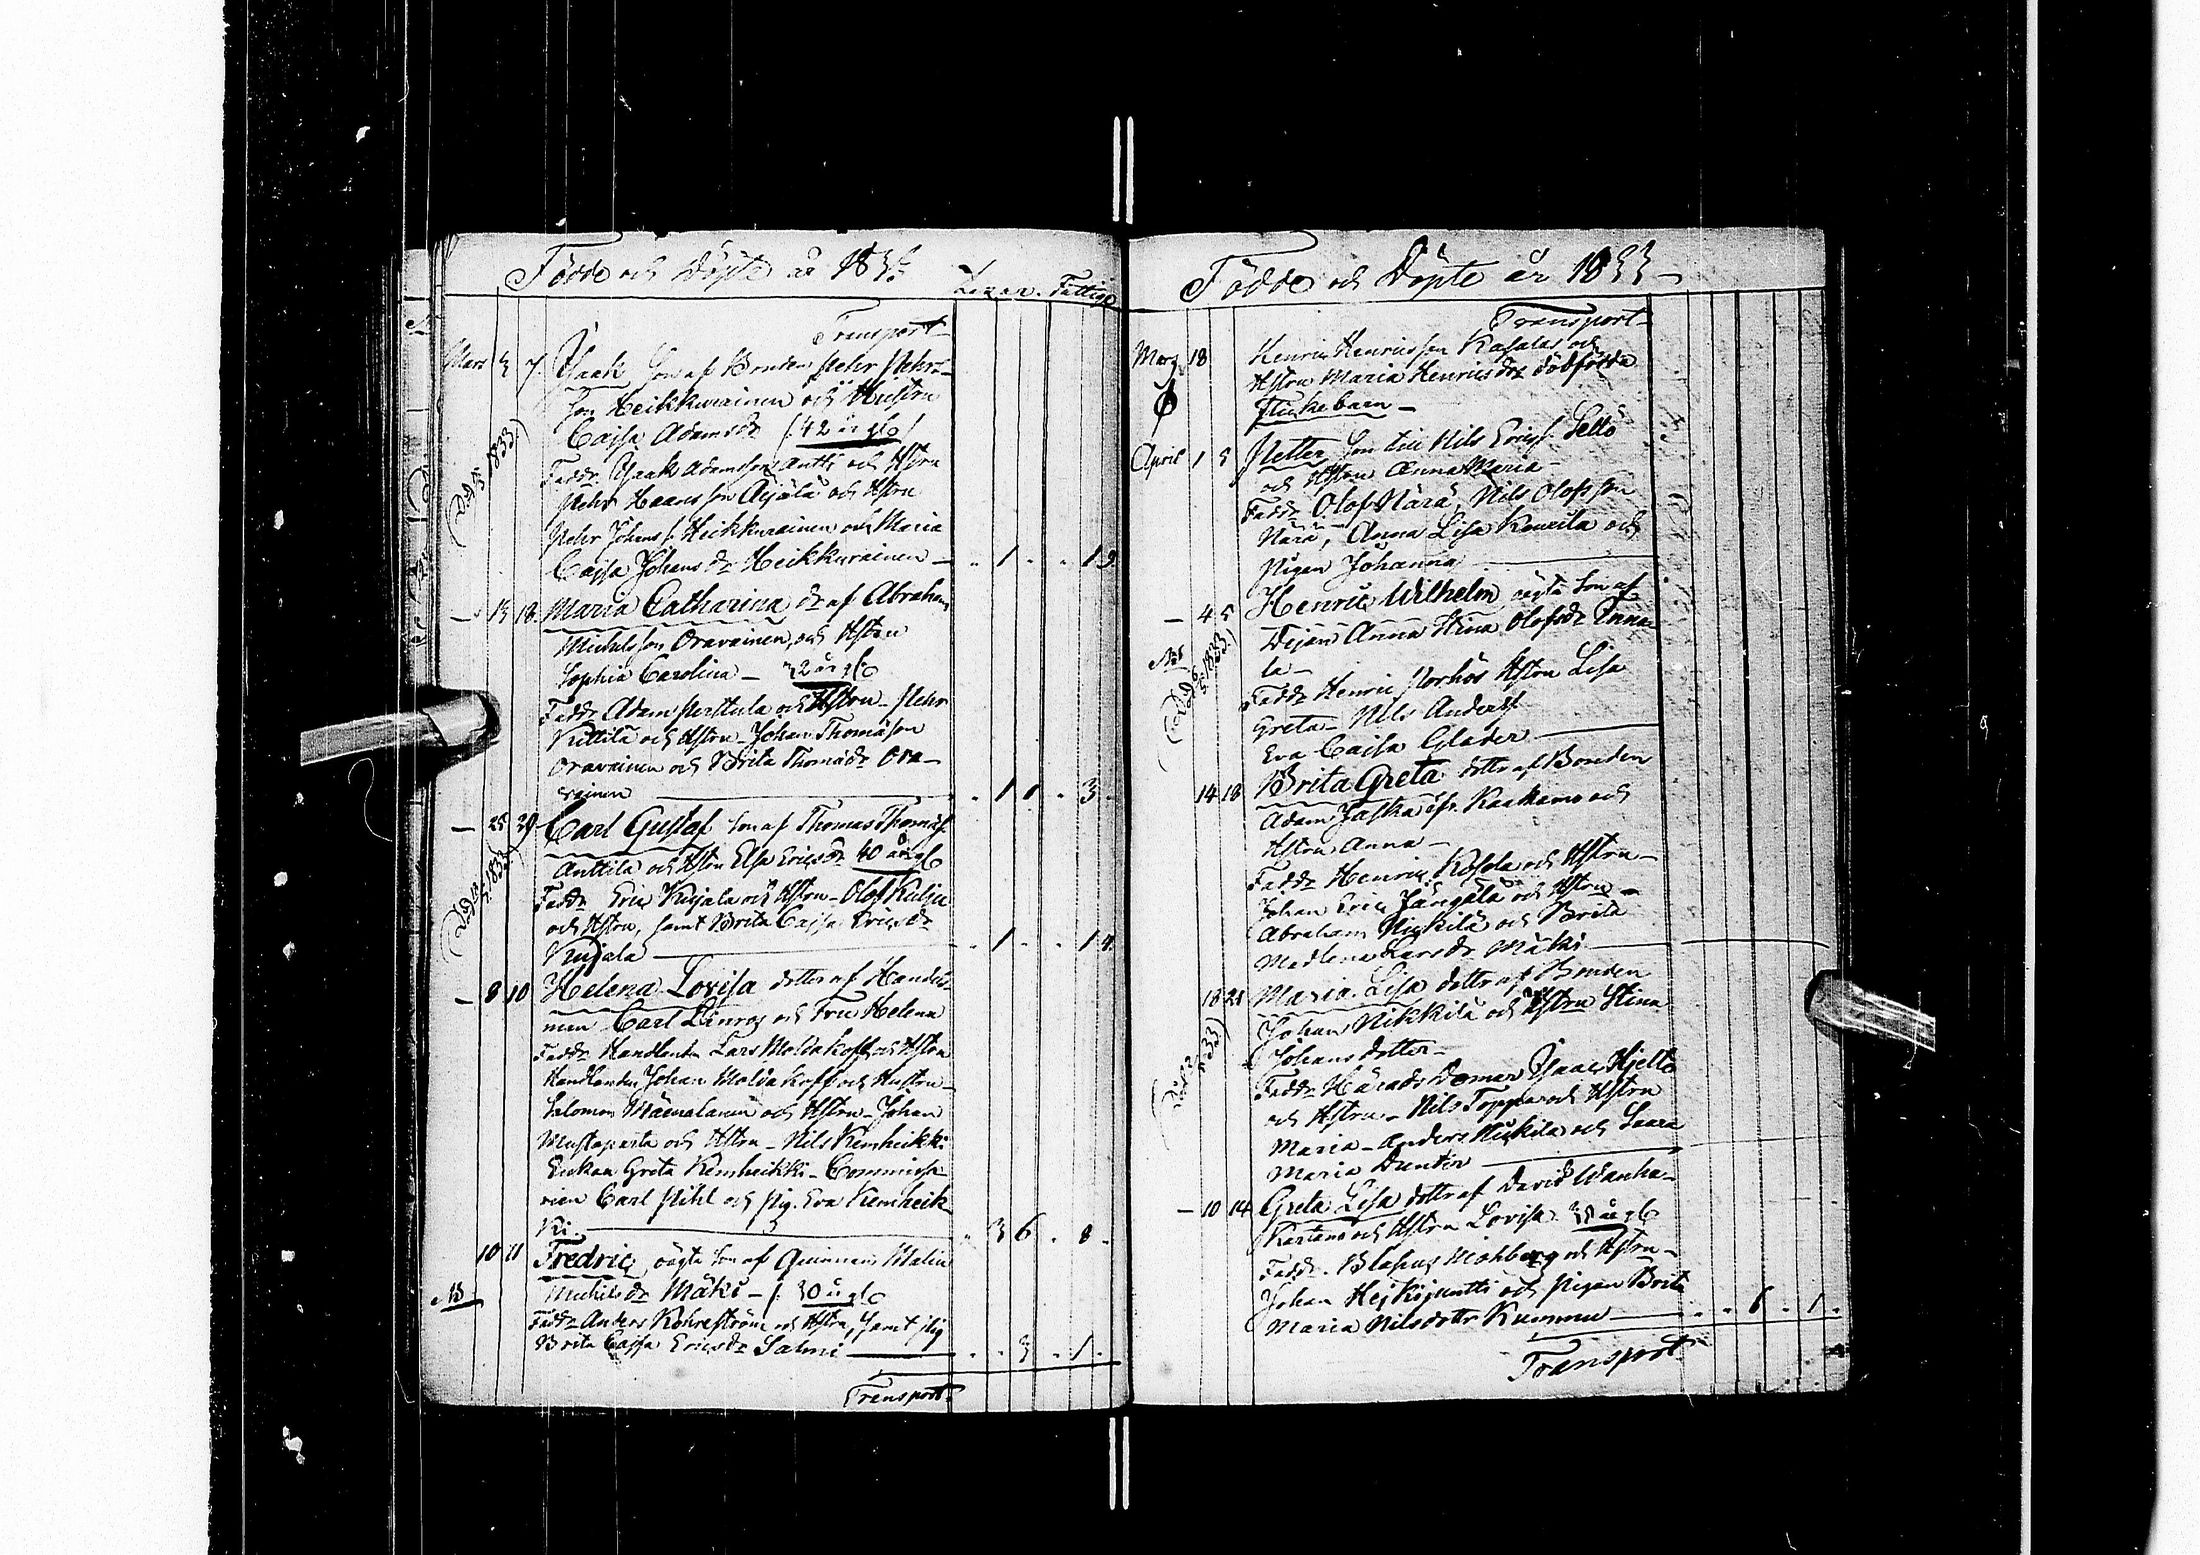 Födde och Döpte år 1833.
Lazar. Fattige
Transport
Mars 3 7. Isaak Son af Bonden Pehr Pehrs-
son Heikkurainen och Hustru
Cajsa Adamsdr (42 år gl)
Faddr. Isaak Adamsson Antti och Hstru
Pehr Hansson Aijälä och Hstru
Pehr Johans s. Heikkurainen och Maria
Cajsa Johansdr Heikkurainen — 1 . . 13.
— 15 18. Maria Catharina dr af Abraham
Michelsson Oravainen och Hstru
Sophia Carolina — 32 år gl
Faddr Adam Perttula och Hstru — Pehr
Kittilä och Hstru Johan Thomasson
Oravainen och Brita Thomasdr Ora-
vainen — . 1 1 . 3.
— 25 29 Carl Gustaf Son af Thomas Thomas s.
Anttila och Hstru Elsa Ericsdr 40 år gl
Faddr Eric Kujala och Hstru — Olof Kulju
och Hstru, samt Brita Cajsa Ericsdr
Kujala — . 1 . . 14.
— 8 10 Helena Lovisa dotter af Handels-
man Carl och Fru Helena
Faddr Handlanden Lars Moldakoff och Hstru
Handlanden Johan Moldakoff och Hustru —
Salomon och Hstru — Johan
Mustaparta och Hstru — Nils Kemheikki
Enkan Greta Kemheikki — Commissa-
rien Carl Pihl och Pig. Eva Kemheik-
ki — . 3 6 . 8.
10 11 Fredric, oägta Son af Qvinnan Malin
NB Michelsdr Mäki — 30 år gl
Faddr Anders Kohreström och Hstru, Samt Pig
Brita Cajsa Ericsdr Salmi — . . 3 . 1.
Transport.
Födde och Döpte år 1833
Transport
Mars 18 Henric Henricsson Kasala och
Hstru Maria Henricsdr dödfödda
flickebarn —
April 1 5 Petter Son till Nils Erics s.
och Hstru Anna Maria
Faddr Olof Närä, Nils Olofsson
Närä, Anna Lisa och
Pigan Johanna
— 4 5 Henric Wilhelm oägta Son af
NB Dejan Anna Stina Olofsdr
la —
Faddr Henric Hstru Lisa
Greta — Nils Anders s.
Eva Cajsa Glader —
14 18 Brita Greta dottr af Bonden
Adam Kaakamo och
Hstru Anna —
Faddr Henric och Hstru —
Johan Eric och Hstru —
Abraham Nikkilä och Brita
Madlena Larsdr Mäki —
18 21 Maria Lisa dottr af Bonden
Johan Nikkilä och Hstru Stina
Johansdotter —
Faddr Härads Domar Isaac Hjelto
och Hstru — Nils Toppar och Hstru
Maria — Anders Nikkilä och Saara
Maria —
— 10 14 Greta Lisa dottr af David Wanha-
Kartano och Hstru Lovisa 38 år gl
Faddr. och Hstru —
Johan Hejkijuntti och Pigan Brita
Maria Nilsdottr — . . 6 . 1.
Transport